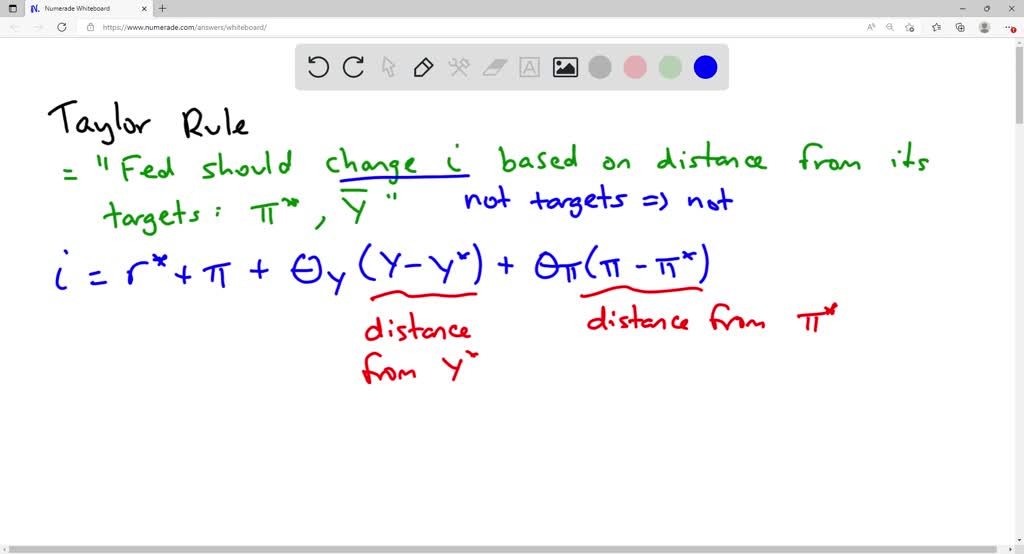 Numerade Whiteboard
https://www.numerade.com/answers/whiteboard/
Taylor Rule
= "Fed should change i based on distance from its
targets: π*, Y̅ " not targets => not
i = r* + π + Θ_Y (Y - Y*) + Θ_π (π - π*)
distance
from Y*
distance from π*